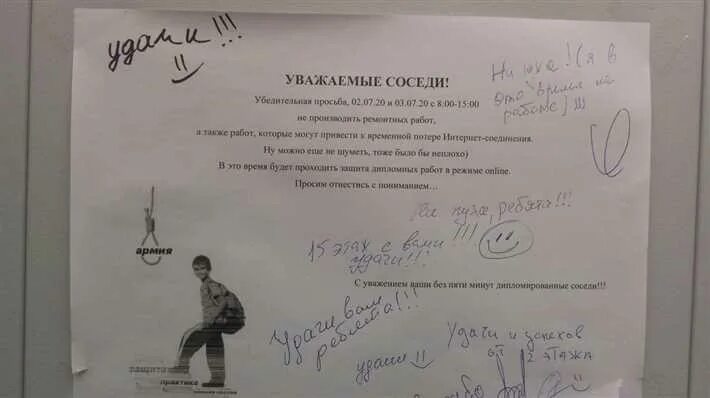 удачи!!!
УВАЖАЕМЫЕ СОСЕДИ!
Убедительная просьба, 02.07.20 и 03.07.20 с 8:00-15:00
не производить ремонтных работ,
а также работ, которые могут привести к временной потере Интернет-соединения.
Ну можно еще не шуметь, тоже было бы неплохо)
В это время будет проходить защита дипломных работ в режиме online.
Просим отнестись с пониманием…
! (я в
это время на
работе) !!!
Ни пуха, ребята!!!
15 этаж с вами !!!
удачи!!!
армия
С уважением ваши без пяти минут дипломированные соседи!!!
Удачи вам
ребята!!!
удачи
Удачи и успехов
от 2 этажа
практика